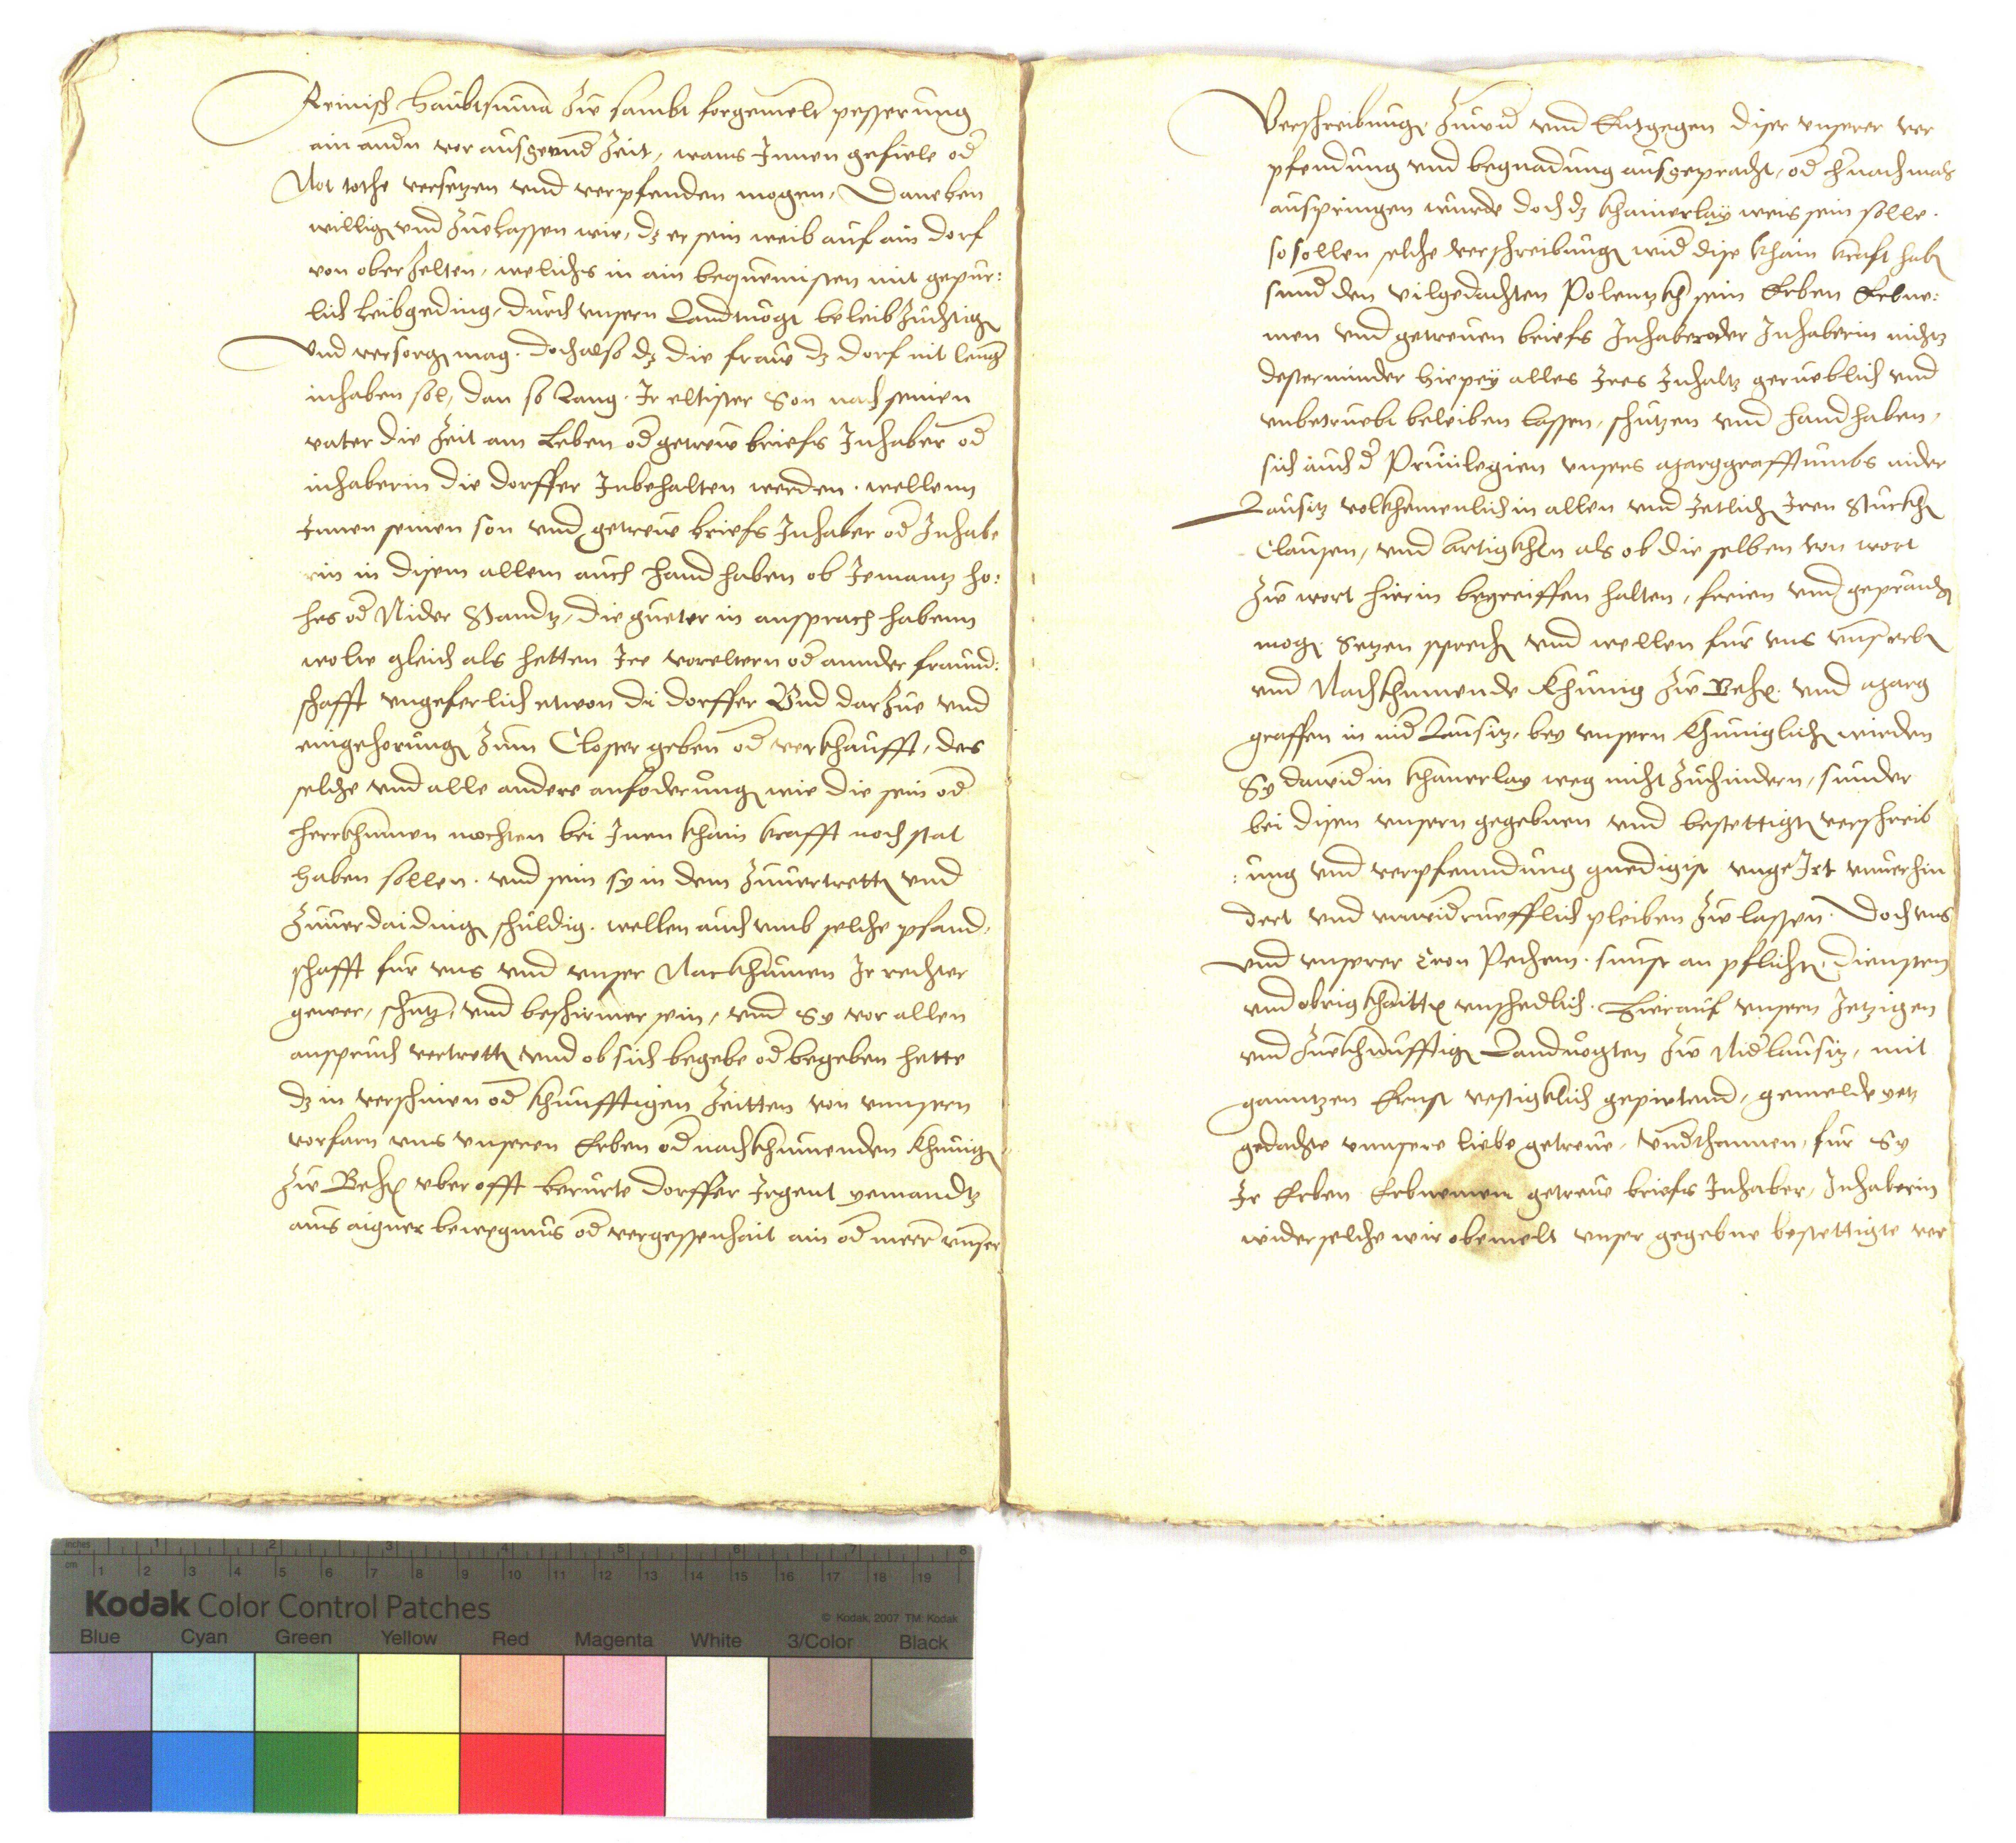 Reinisch haubtsuma zw sambt forgemelt pesserung
ain andn vor ausgeend Zeit, wans Innen gefiele od
Not tethe versetzen vnd verpfenden mogen, Daneben
willig vnd Zuelassen wir, dz er sein weib auf ain dorf
von oberzelten, welichs in ain bequemisten mit gepur:
lich Leibgeding, durch vnsern Landtuogt beleibzuchtig
vnd versorg mag. doch also dz die fraw dz dorf nit leng
inhaben sol, dan so Lang. Ir eltister Son nach seinen
vater die Zeit am Leben od getrew briefs Inhaber od
inhaberin die dorffer Inbehalten werden. wellenn
Innen seinen son vnd getrew briefs Inhaber od Inhabe
rin in disem allem auch handhaben ob Iemantz ho:
hes od Nider Standtz, die gueter in ansprach habenn
wolte gleich als hetten Ire voreltern od annder fraund:
schafft vngeferlich etwon di dorffer Vnd darzue vnd
eingehorung zum Closter geben od verkhaufft, des
selche vnd alle andere anfoderung wie die sein od
herrkhumen mochten bei Inen khain krafft noch stat
haben sollen. vnd sein sy in dem Zuuertrett vnd
Zuuerdaiding schuldig. wellen auch vmb selche pfand,
schafft fur vns vnd vnser Nackhumen Ir rechter
gewer, schutz, vnd beschirmer sein, vnd Sy vor allen
anspruch vertrett vnd ob sich begebe od begeben hette
dz in verschinen od khunfftigen Zeitten von vnnsern
vorfarn vns vnseren Erben od nachkhumenden Khunig
Zw Beh vber offt berurte dorffer Irgent yemandtz
aus aigner bewegnus od vergessenhait ain od meer vnser
Verschreibung Zuwid vnd Entgegen diser vnserer ver
pfendung vnd begnadung ausgepracht, od hinachmals
auspringen wurde doch dz khainerlay weis sein solle.
so sollen selche verschreibung wid dise khain kraft hab
sund den vilgedachten Polentzkh sein Erben Erbne:
men vnd getreuen briefs Inhaber oder Inhaberin nichtz
desterminder hiepey alles Ires Inhaltz gerueblich vnd
vnbetruebt beleiben lassen, schutzen vnd handhaben,
sich auch d Priuilegien vnsers Marggrafftumbs nider
Lausitz volkhemenlich in allen vnd Jetlich Iren Stuckh
Clausen, vnd Artigkhln als ob die selben von wort
Zw wort hierin begreiffen halten, freien vnd geprauch
mog. Setzen sprech vnd wellen fur vns vnser erb
vnd Nachkhumende Khunig Zw Beh. vnd Marg
graffen in nid Lausitz, bey vnsern Khuniglich wirden
Sy dawid in khainerlay weg nicht Zuhindern, sunder
bei disen vnsern gegebnen vnd bestettigt verschreib
:ung vnd verpfenndung gnedigist vngeIrt vnuerhin
dert vnd vnwidrueflich pleiben Zw lassen. Doch vns
vnd vnserer Cron Pechem. sunst an pflicht, diensten
vnd obrigkhaitt vnschedlich. Hierauf vnsern Jetzigen
vnd Zuekhunfftig Landuogten Zw Nidlausitz, mit
ganntzen Ernst vestigklich gepietend, gemelde yetz
gedachte vnnsere liebe getreue, vndthannen, fur Sy
Ir Erben Erbnemem getrew briefs Inhaber, Inhaberin
wider selche wir obemelt vnser gegebne bestettigte ver
inches
cm
Kodak Color Control Patches
© Kodak, 2007 TM: Kodak
Blue Cyan Green Yellow Red Magenta White 3/Color Black